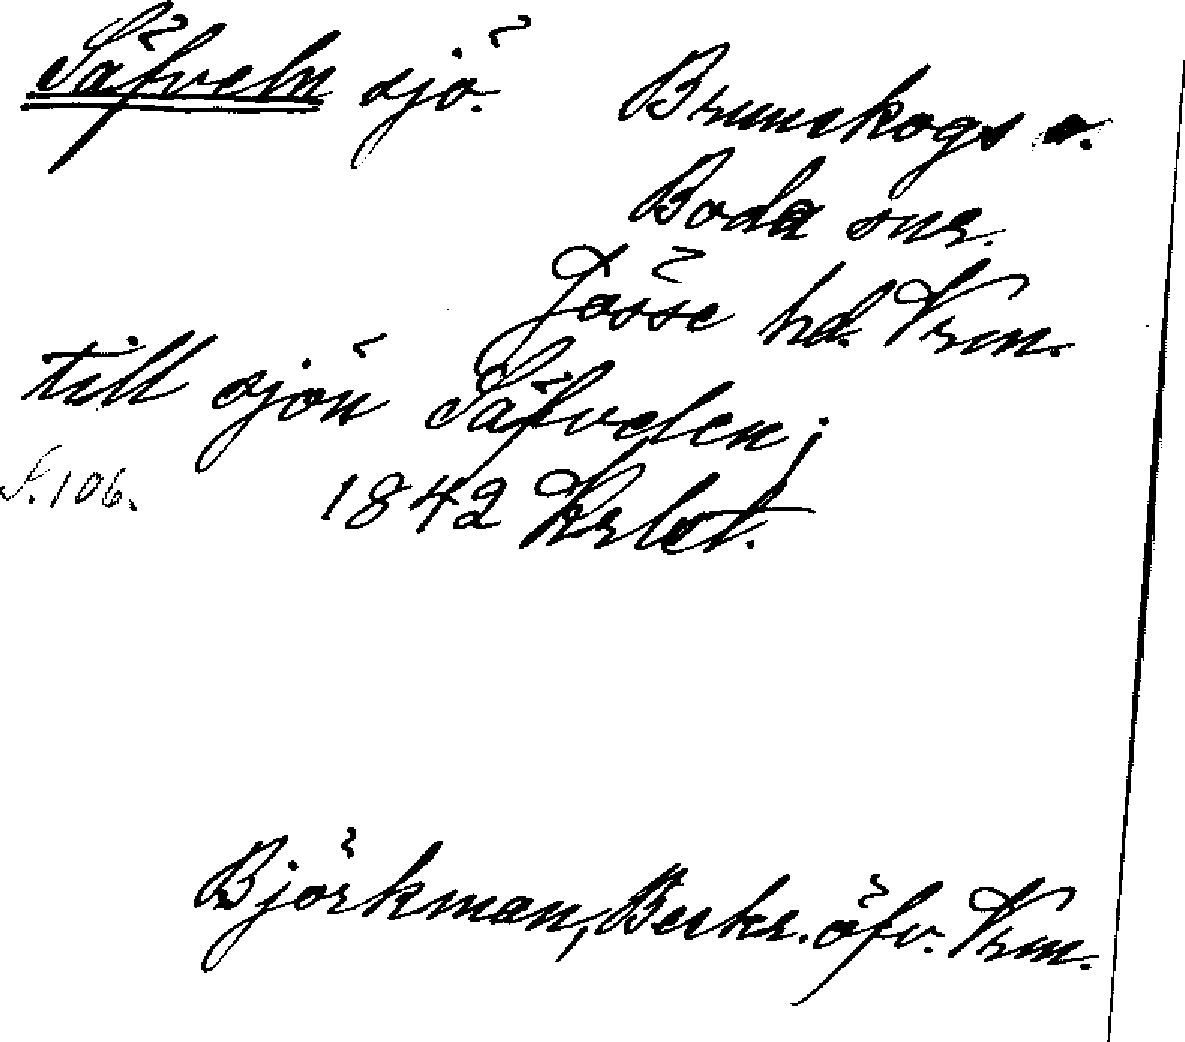 Säfveln sjö. Brunskogs o.
Boda snr.
Jösse hd. Vrm.
till sjön Säfvelen;
S. 106. 1842 Krlot.
Björkman, Beskr. öfv. Vrm.